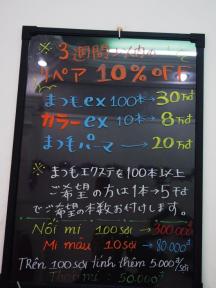 ※3週間以内
リペア 10% OFF
まつもex 100本→30万đ
カラーex 10本→8万đ
まつもパーマ→20万đ
※まつもエクステを100本以上
ご希望の方は1本→5千đ
でご希望の本数お付けします。
Nối mi 100 sợi → 300.000
Mi màu 10 sợi → 80.000đ
Trên 100 sợi tính thêm 5.000đ/sợi
Tháo mi: 50.000đ